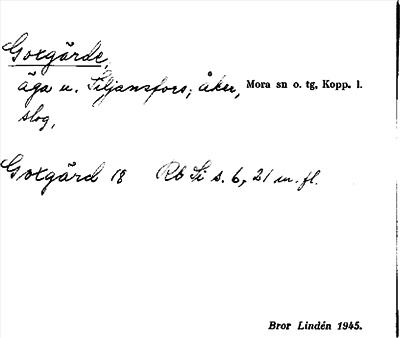 Goxgärde,
äga u. Siljansfors; åker, Mora sn o. tg, Kopp. l.
slog,
Goxgärd 18 Rb Si s. 6, 21 m. fl.
Bror Lindén 1945.